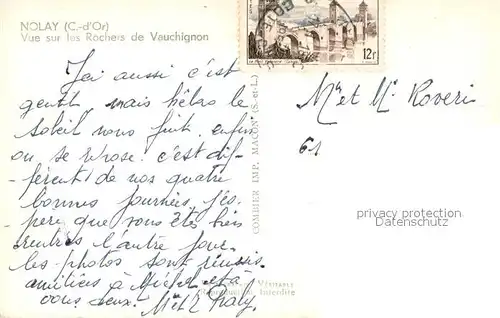 NOLAY (C.-d'Or)
Vue sur les Rochers de Vauchignon
12f
Ici aussi c'est
gentil, mais hélas le
soleil nous fuit, enfin
on se repose. c'est dif-
-férent de nos quatre
bonnes journées, j'es-
père que vous êtes bien
rentrés l'autre jour.
les photos sont réussis.
amitiés à Michel et à
vous deux.
COMBIER IMP. MACON (S.-et-L.)
Mr et Me Roveri
61
privacy protection
Datenschutz
Interdite